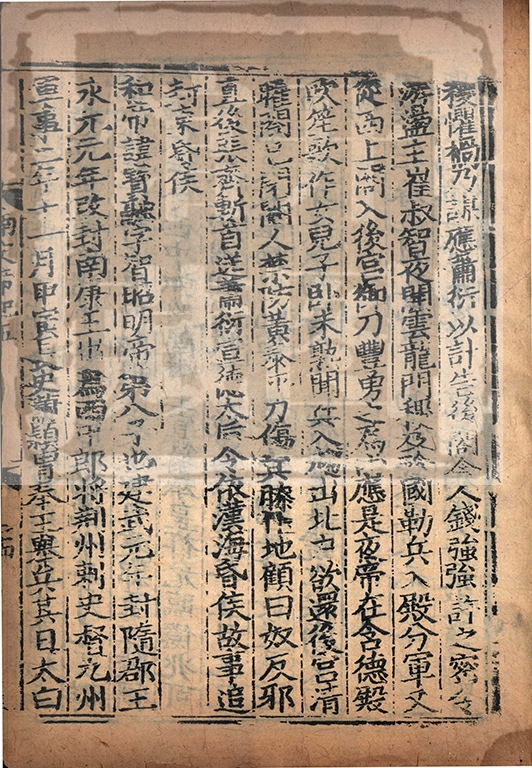 稷懼禍乃謀應蕭衍以計告後閤舍人錢強強許之密令
游盪主崔叔智夜開雲龍門稷及珍國勒兵入殿分軍又
從西上閤入後宮御刀豐勇之為內應是夜帝在含德殿
吹笙歌作女兒子臥未熟聞兵入趨出北戶欲還後宮清
曜閤已閉閹人禁防黃泰平刀傷其膝仆地顧曰奴反邪
直後張齊斬首送蕭衍宣德太后令依漢海昏侯故事追
封東昏侯
和帝諱寶融字智昭明帝第八子也建武元年封隨郡王
永元元年改封南康王出為西中郎將荊州刺史督九州
軍事二年十一月甲寅長史蕭穎冑奉王舉兵其日太白